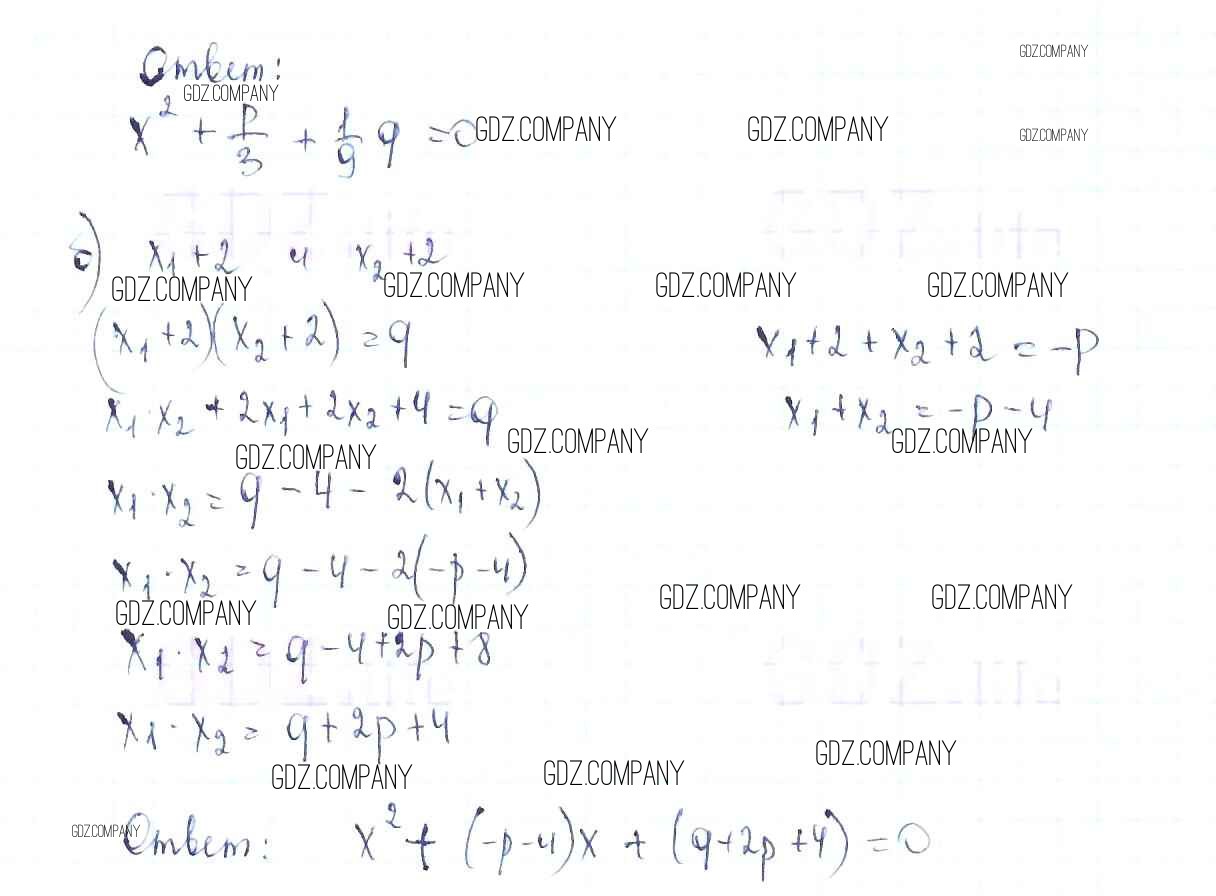 Ответ:
GDZ.COMPANY
GDZ.COMPANY
x² + p/3 + 1/9 q = 0 GDZ.COMPANY GDZ.COMPANY GDZ.COMPANY
б) x₁ + 2 и x₂ + 2
GDZ.COMPANY GDZ.COMPANY GDZ.COMPANY GDZ.COMPANY
(x₁ + 2)(x₂ + 2) = q x₁ + 2 + x₂ + 2 = -p
x₁ · x₂ + 2x₁ + 2x₂ + 4 = q x₁ + x₂ = -p - 4
GDZ.COMPANY GDZ.COMPANY GDZ.COMPANY
x₁ · x₂ = q - 4 - 2(x₁ + x₂)
x₁ · x₂ = q - 4 - 2(-p - 4)
GDZ.COMPANY GDZ.COMPANY GDZ.COMPANY GDZ.COMPANY
x₁ · x₂ = q - 4 + 2p + 8
x₁ · x₂ = q + 2p + 4
GDZ.COMPANY GDZ.COMPANY GDZ.COMPANY
GDZ.COMPANY
Ответ: x² + (-p-4)x + (q+2p+4) = 0